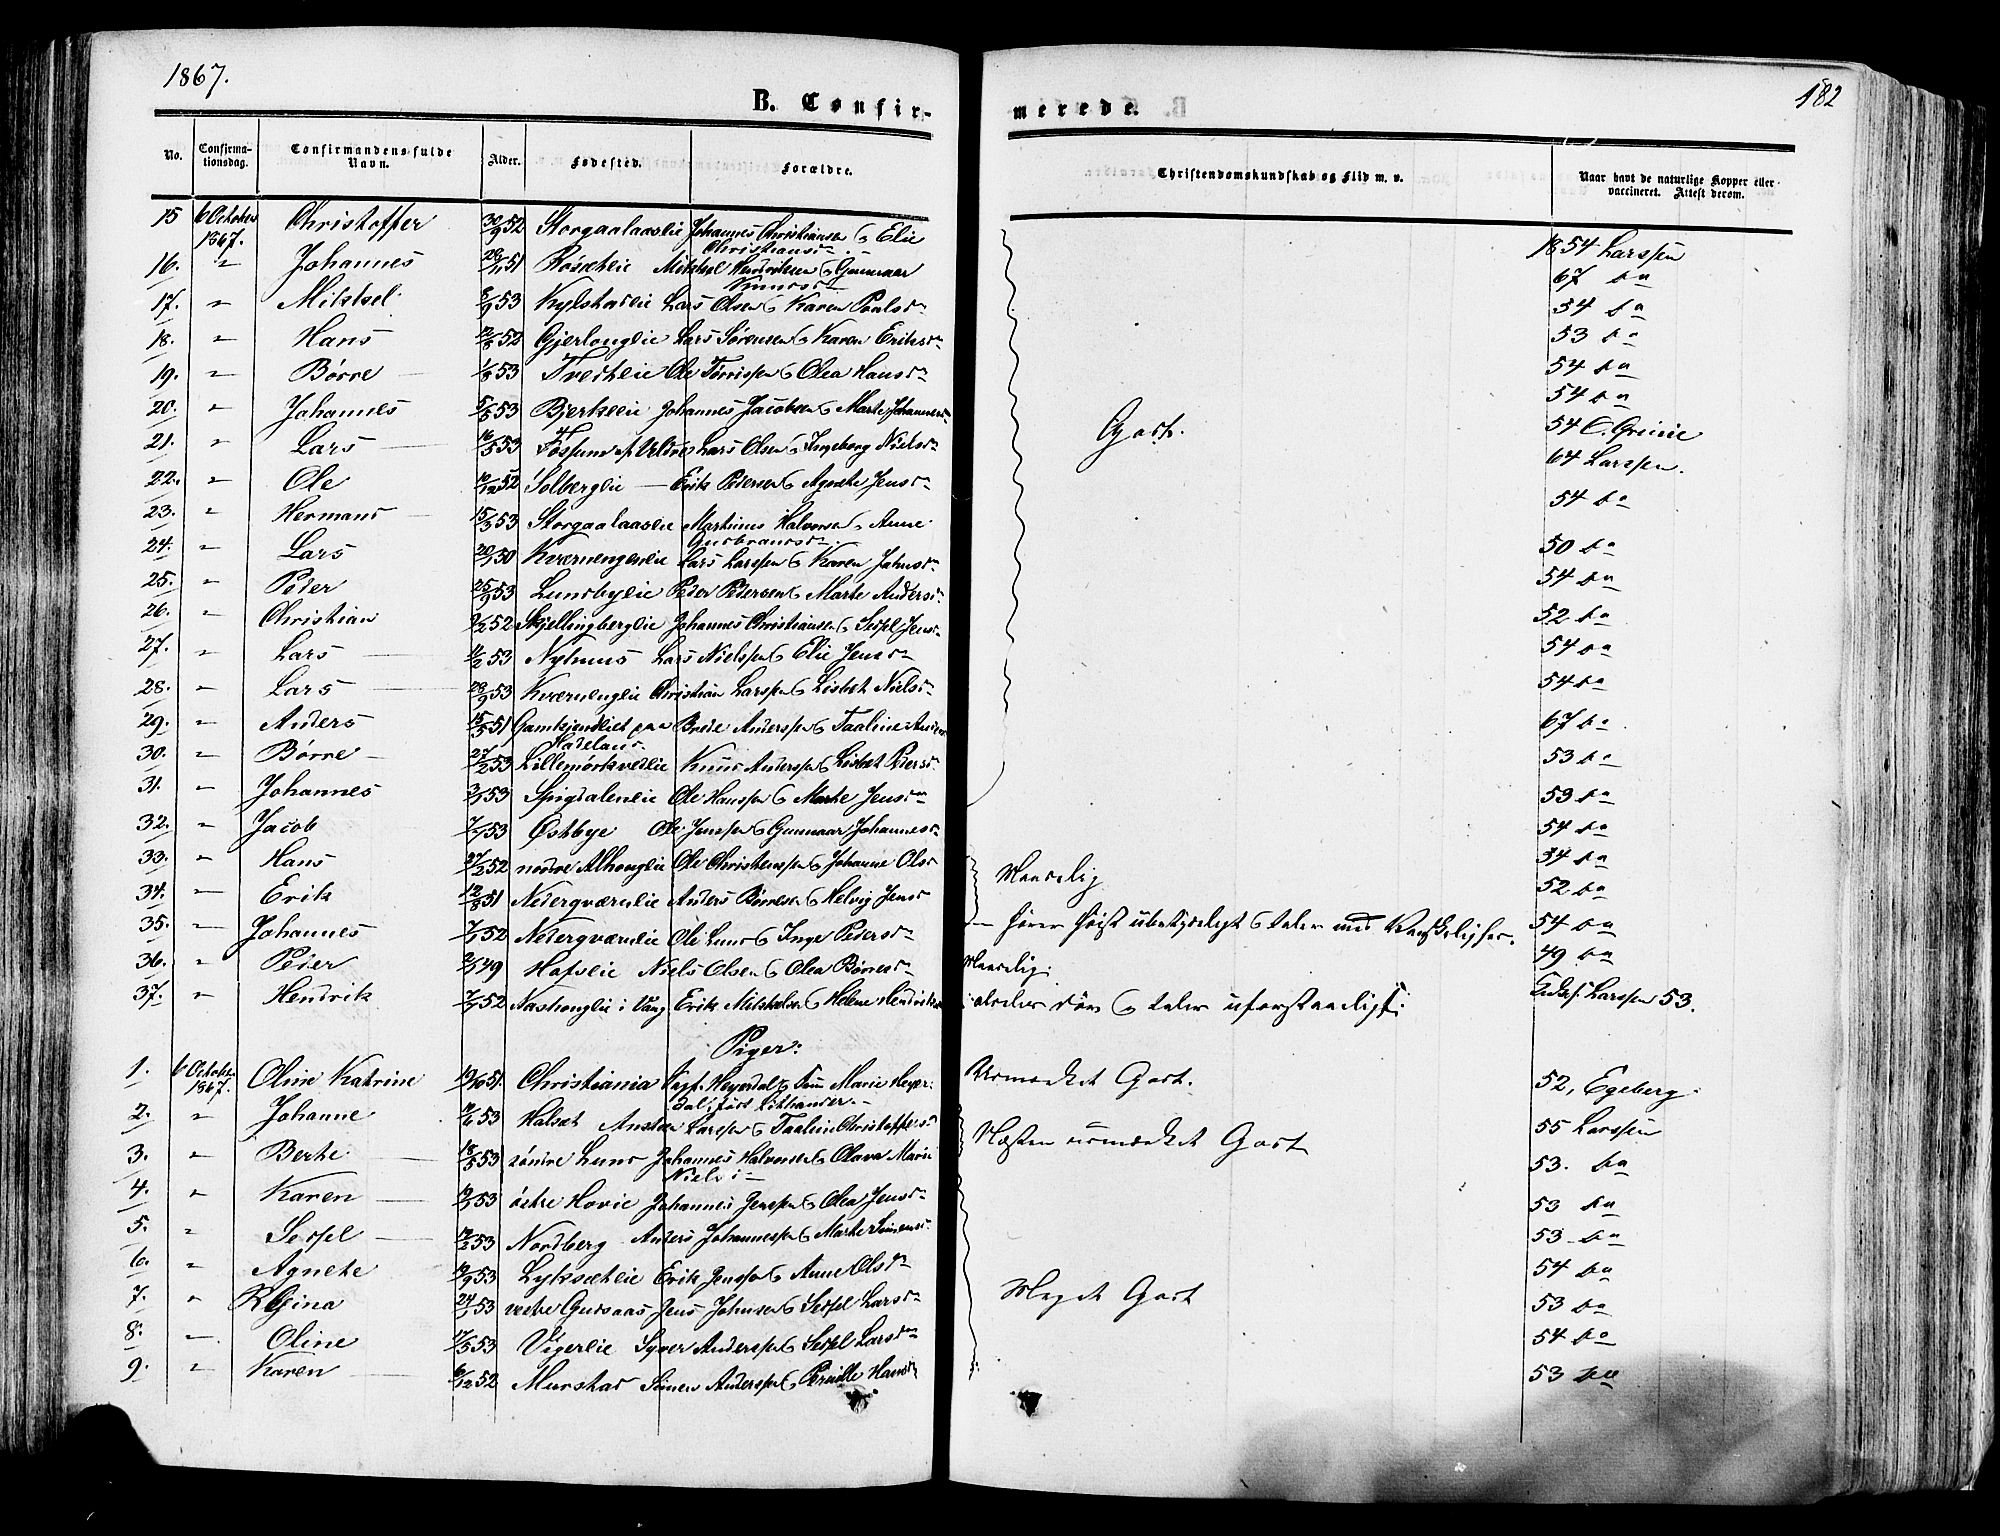 1867.
182
B. Confir-
merede.
No. Confirma-tionsdag. Confirmandens fulde Navn. Alder. Fødested. Forældre. Christendomskundskab og Flid m. v. Naar havt de naturlige Kopper eller vaccineret. Attest derom.
15 6 October 1867. Christoffer 30/9 52 Storgaalaaseie Johannes Christiansen & Elie Christiansd 1854 Larssen
16. " Johannes 51 Mikkel Hendriksen & Gunnaar Knudsd 67 do
17. " Mikkel 53 Kylstadeie Lars Olsen & Karen Paalsd 54 do
18. " Hans 52 Gjerlougeie Lars Sørensen & Karen Eriksd 53 do
19. " Børre 53 Tvedteie Ole Tørrissen & Olea Hansd 54 do
20. " Johannes 53 Bjerkeeie Johannes Jacobsen & Marte Johannesd 54 do
21. " Lars 53 Fossum af Veldre Lars Olsen & Ingeborg Nielsd Godt. 54 C. Greiüe
22. " Ole 10/12 52 Solbergeie Erik Pedersen & Agnete Jensd 64 Larssen.
23. " Herman 15/3 53 Storgaalaaseie Martinus Halvorsen & Anne Gudbrandsd 54 do
24. " Lars 50 Kværnengeneie Lars Larssen & Karen Johnsd 50 do
25. " Peder 25/9 53 Lundbyeie Peder Pedersen & Marte Andersd 54 do
26. " Christian 52 Skjellingbergeie Johannes Christiansen & Seipel Jensd 52 do
27. " Lars 53 Nyhuus Lars Nielsen & Elie Jensd 54 do
28. " Lars 28/9 53 Kværnengeie Christian Larssen & Lisbet Nielsd 54 do
29. " Anders 51 Gamkjendliet paa Hadeland Brede Anderssen & Taaline Anders 67 do
30. " Børre 27/2 53 Lillemørkvedeie Knud Anderssen & Lisbet Pedersd 53 do
31. " Johannes 53 Spigdaleneie Ole Hanssen & Marte Jensd 53 do
32. " Jacob 53 Østbye Ole Jenssen & Gunnaar Johannesd 54 do
33. " Hans 27/2 52 nordre Alhougeie Ole Christenssen & Johanne Olsd Maadelig 54 do
34. " Erik 12/8 51 Nedergværneie Anders Børresen & Helvig Jensd 52 do
35. " Johannes 52 Nedergværneie Ole Lund & Inge Pedersd hører høist ubetydeligt & taler med Vanskelighed. 54 do
36. " Peder 49 Hafseie Niels Olsen & Olea Børresd Maadelig 49 do
37. " Hendrik 52 Nashougeie i Vang Erik Mikkelsen & Helene Hendriksd aldeles døv & taler uforstaaeligt Larssen 53.
Piger:
1. 6 October 1867. Oline Katrine 51. Christiania Heyerdal & Marie Heyerdal, født Lithander Udmærket Godt. 52, Egeberg
2. " Johanne 53 Halset Larssen & Taaline Christoffersd 55 Larssen
3. " Berte 18/5 53 søndre Lund Johannes Halvorsen & Olava Marie Nielsd Næsten udmærket Godt 53. do
4. " Karen 53 østre Hovie Johannes Jenssen & Olea Jensd 53 do
5. " Seipel 53 Nordberg Anders Johannessen & Marte Simensd 53 do
6. " Agnete 53 Lykseteie Erik Jenssen & Anne Olsd 54 do
7. " Regina 53 vestre Gudsaas Jens Johnsen & Seipel Larsd Meget Godt 53 do
8. " Oline 53 Vigereie Syver Anderssen & Seipel Larsd 54 do
9. " Karen 6/12 52 Murstad Simen Anderssen & Pernille Hansd 53 do